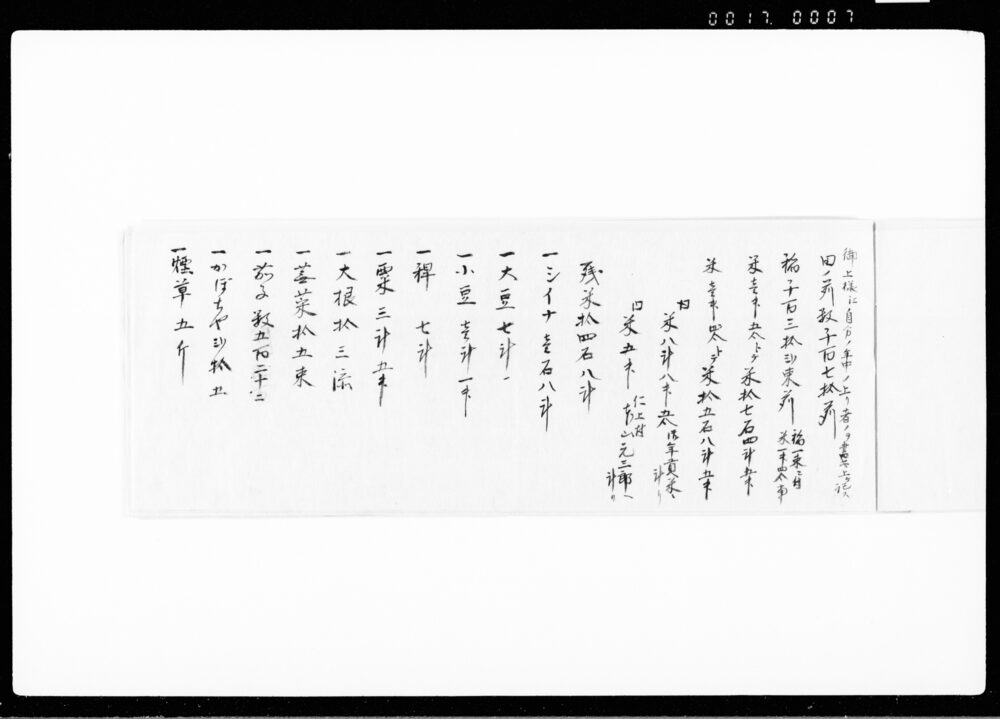 0017. 0007
御上様に自分ノ年中ノ上り者ノヲ書上ケ
田ノ苅数千百七拾苅
稲千百三拾弐束苅
稲一束ニ付
米壱升五合トシテ米拾七石四斗五升
米壱升四合トシテ米拾五石八斗五升
内 米八斗八升五合 御年貢米 計り
口 米五升 仁上村 元三郎へ 計り
残米拾四石八斗
一シイナ壱石八斗
一大豆七斗
一小豆壱斗一升
一稗 七斗
一粟三斗五升
一大根拾三
一蕪菜拾五束
一茄子数五百二十
一かぼちや弐拾五
一煙草五斤